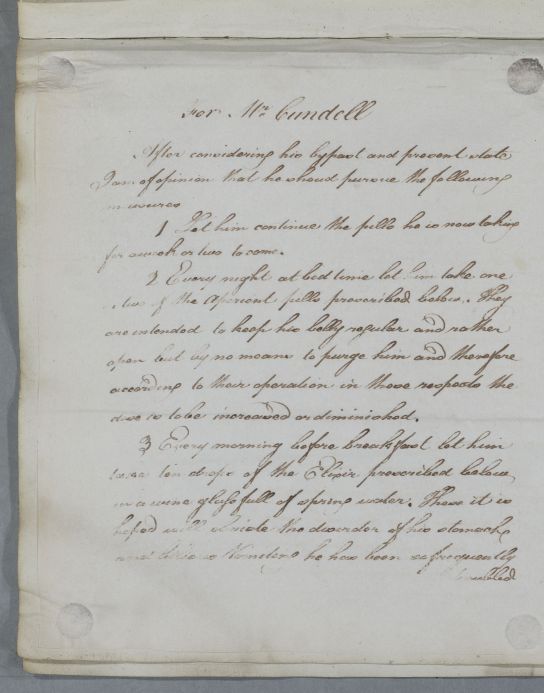 For Mr. Cundell
After considering his bypast and present state
I am of opinion that he shoud pursue the following
measures
1 Let him continue the pills he is now taking
for a week or two to come.
2 Every night at bed time let him take one
or two of the Aperient pills prescribed below. They
are intended to keep his belly regular and rather
open but by no means to purge him and therefore
according to their operation in these respects the
dose is to be increased or diminished.
3 Every morning before breakfast let him
take ten drops of the Elixir prescribed below
in a wine glass full of spring water. These it is
hoped will obviate the disorder of his stomach
and he has been so frequently
troubled